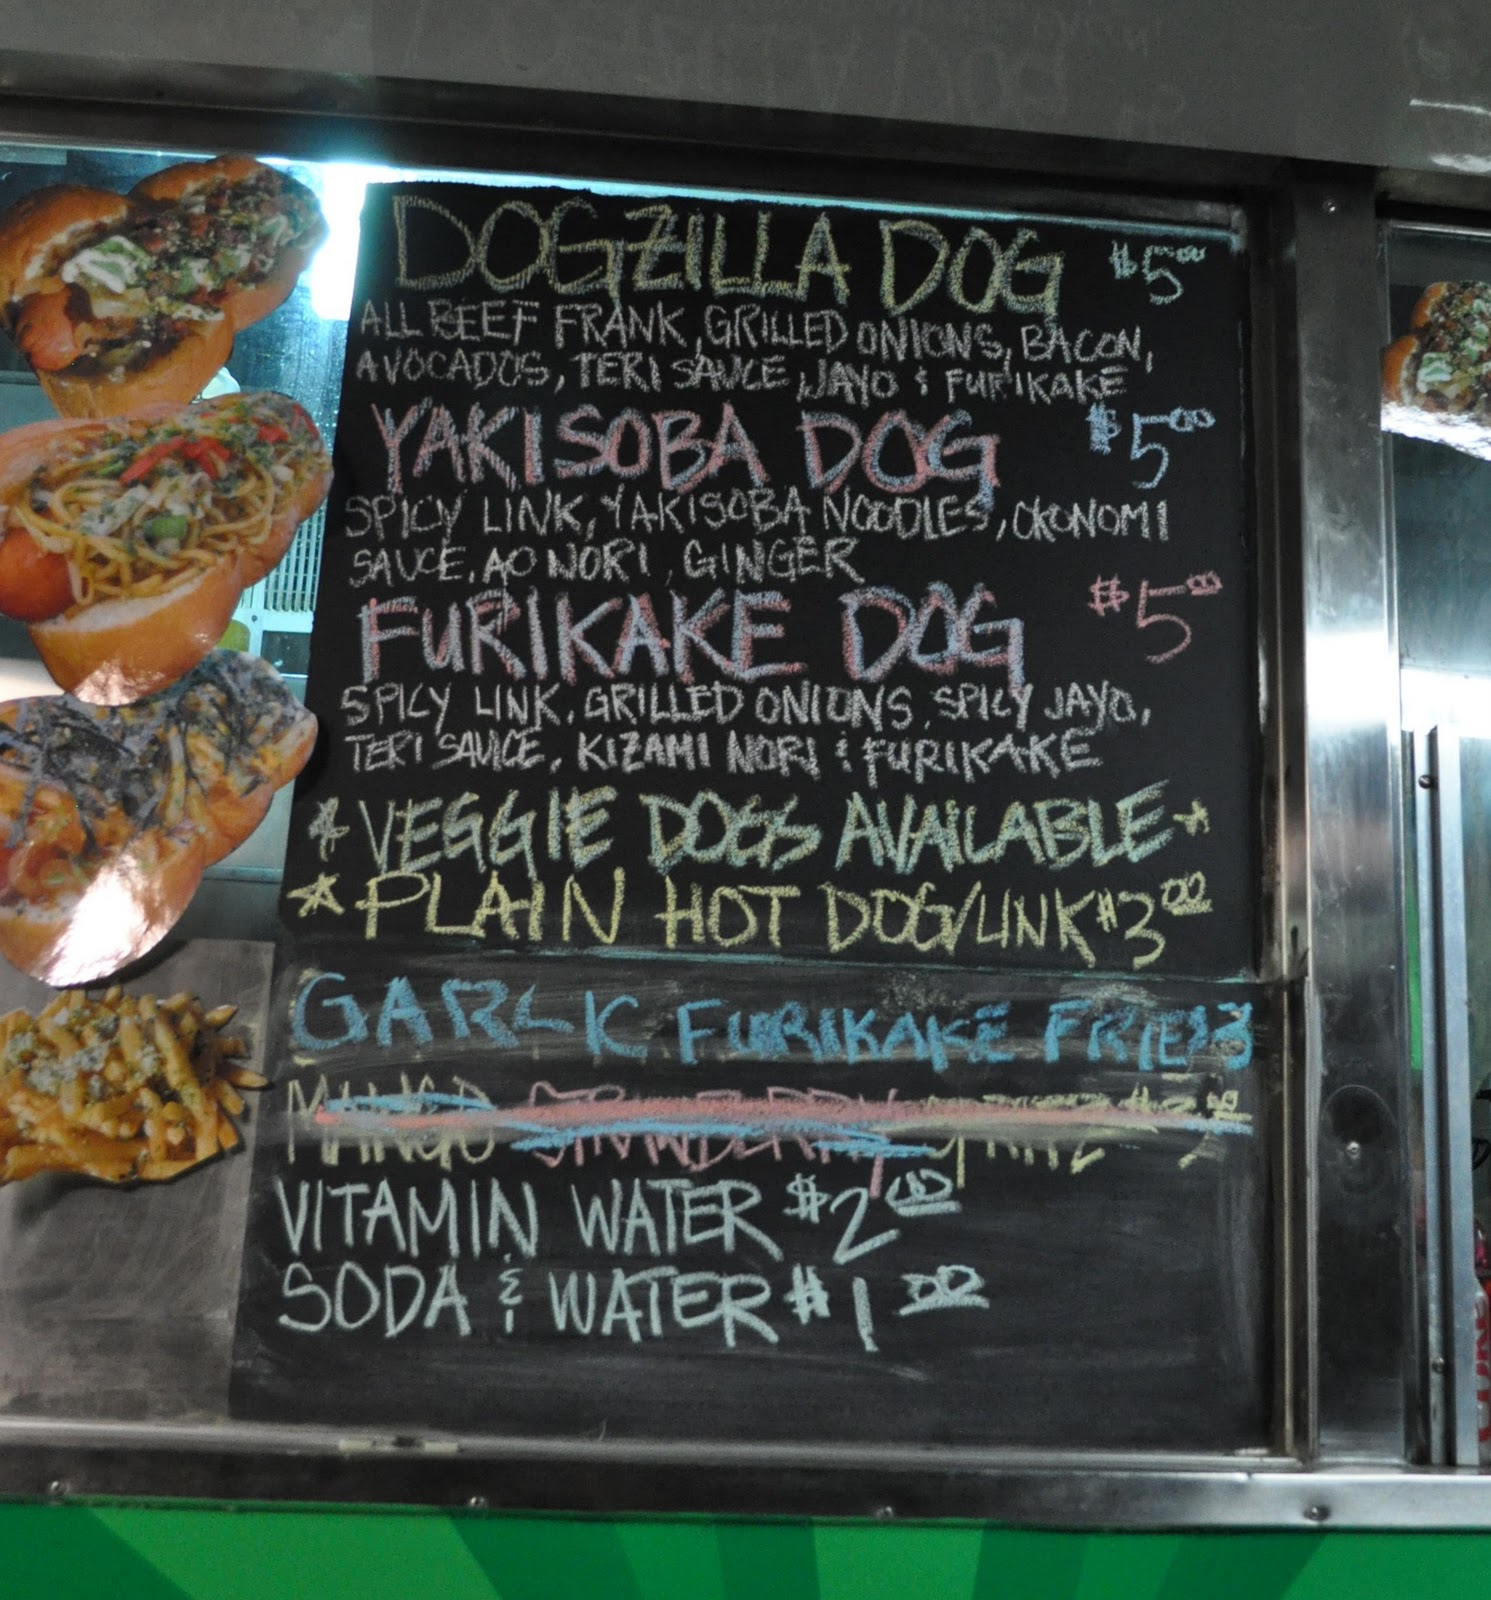 DOGZILLA DOG $5.00
ALL BEEF FRANK, GRILLED ONIONS, BACON,
AVOCADOS, TERI SAUCE, JAYO & FURIKAKE
YAKISOBA DOG $5.00
SPICY LINK, YAKISOBA NOODLES, OKONOMI
SAUCE, AO NORI, GINGER
FURIKAKE DOG $5.00
SPICY LINK, GRILLED ONIONS, SPICY JAYO,
TERI SAUCE, KIZAMI NORI & FURIKAKE
* VEGGIE DOGS AVAILABLE *
* PLAIN HOT DOG/LINK $3.00
GARLIC FURIKAKE FRIES 3
MANGO STRAWBERRY
VITAMIN WATER $2.00
SODA & WATER $1.00